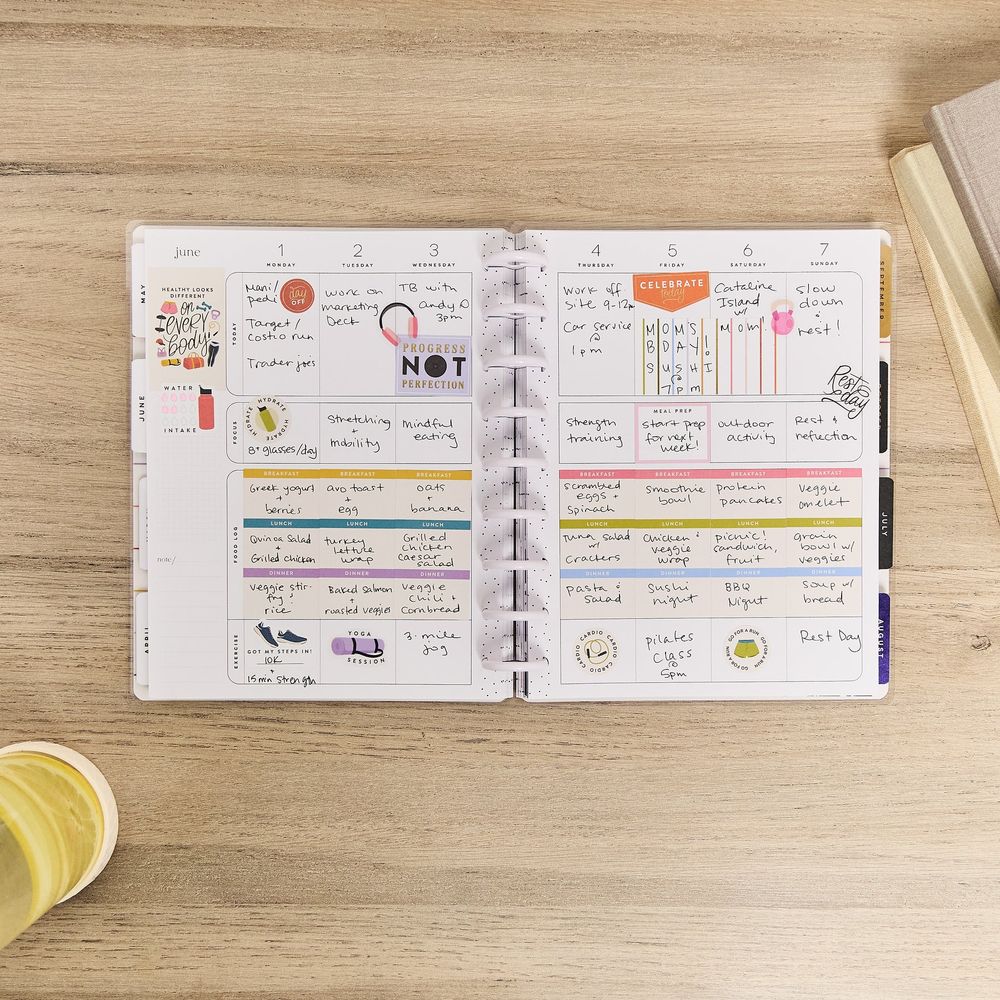 june
1
MONDAY
2
TUESDAY
3
WEDNESDAY
4
THURSDAY
5
FRIDAY
6
SATURDAY
7
SUNDAY
MAY
JUNE
APRIL
SEPTEMBER
JULY
AUGUST
HEALTHY LOOKS
DIFFERENT
on
EVERY
body!
WATER
INTAKE
note/
TODAY
Mani/
pedi
day
OFF
Target/
Costco run
Trader joes
work on
marketing
Deck
TB with
andy @
3pm
PROGRESS
NOT
PERFECTION
work off
site 9-12p
Car service
@
1pm
CELEBRATE
today
MOMS
BDAY!
SUSHI
@
7pm
Catalina
Island
w/
MOM!
slow
down
+
rest!
Rest
day
FOCUS
HYDRATE HYDRATE HYDRATE
8+ glasses/day
Stretching
+
mobility
mindful
eating
strength
training
MEAL PREP
start prep
for next
week!
outdoor
activity
Rest &
reflection
FOOD LOG
BREAKFAST
Greek yogurt
+
berries
BREAKFAST
avo toast
+
egg
BREAKFAST
oats
+
banana
BREAKFAST
scrambled
eggs +
Spinach
BREAKFAST
smoothie
bowl
BREAKFAST
protein
pancakes
BREAKFAST
Veggie
omelet
LUNCH
Quinoa Salad
+
Grilled chicken
LUNCH
turkey
lettuce
wrap
LUNCH
Grilled
chicken
caesar
salad
LUNCH
tuna salad
w/
crackers
LUNCH
Chicken +
veggie
wrap
LUNCH
picnic!
sandwich,
fruit
LUNCH
grain
bowl w/
veggies
DINNER
veggie stir
fry +
rice
DINNER
Baked Salmon
+
roasted veggies
DINNER
veggie
chili +
Cornbread
DINNER
pasta +
Salad
DINNER
Sushi
night
DINNER
BBQ
Night
DINNER
soup w/
bread
EXERCISE
GOT MY STEPS IN!
10K
+
15 min strength
YOGA
SESSION
3-mile
jog
CARDIO CARDIO CARDIO CARDIO
pilates
Class
@
5pm
GO FOR A RUN GO FOR A RUN GO FOR A RUN
Rest Day